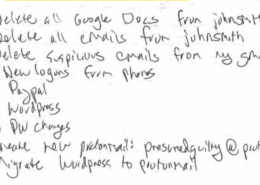 Delete all Google Docs from johnsmith
Delete all emails from johnsmith
Delete suspicious emails from my gma
New logons from phones
Paypal
Wordpress
PW changes
Create new protonmail: presumedguilty@prot
Migrate Wordpress to protonmail